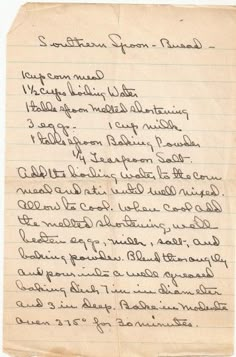 Southern Spoon-Bread-
1 cup corn meal
1 1/2 cups boiling Water
1 table spoon melted shortening
3 eggs. 1 cup milk
1 table spoon Baking Powder
1/4 Teaspoon Salt.
Add the boiling water to the corn
meal and stir until well mixed.
Allow to cool. When cool add
the melted shortening, well
beaten eggs, milk, salt, and
baking powder. Blend thoroughly
and pour into a well greased
baking dish, 7 in in diameter
and 3 in deep. Bake in moderate
oven 375° for 30 minutes.